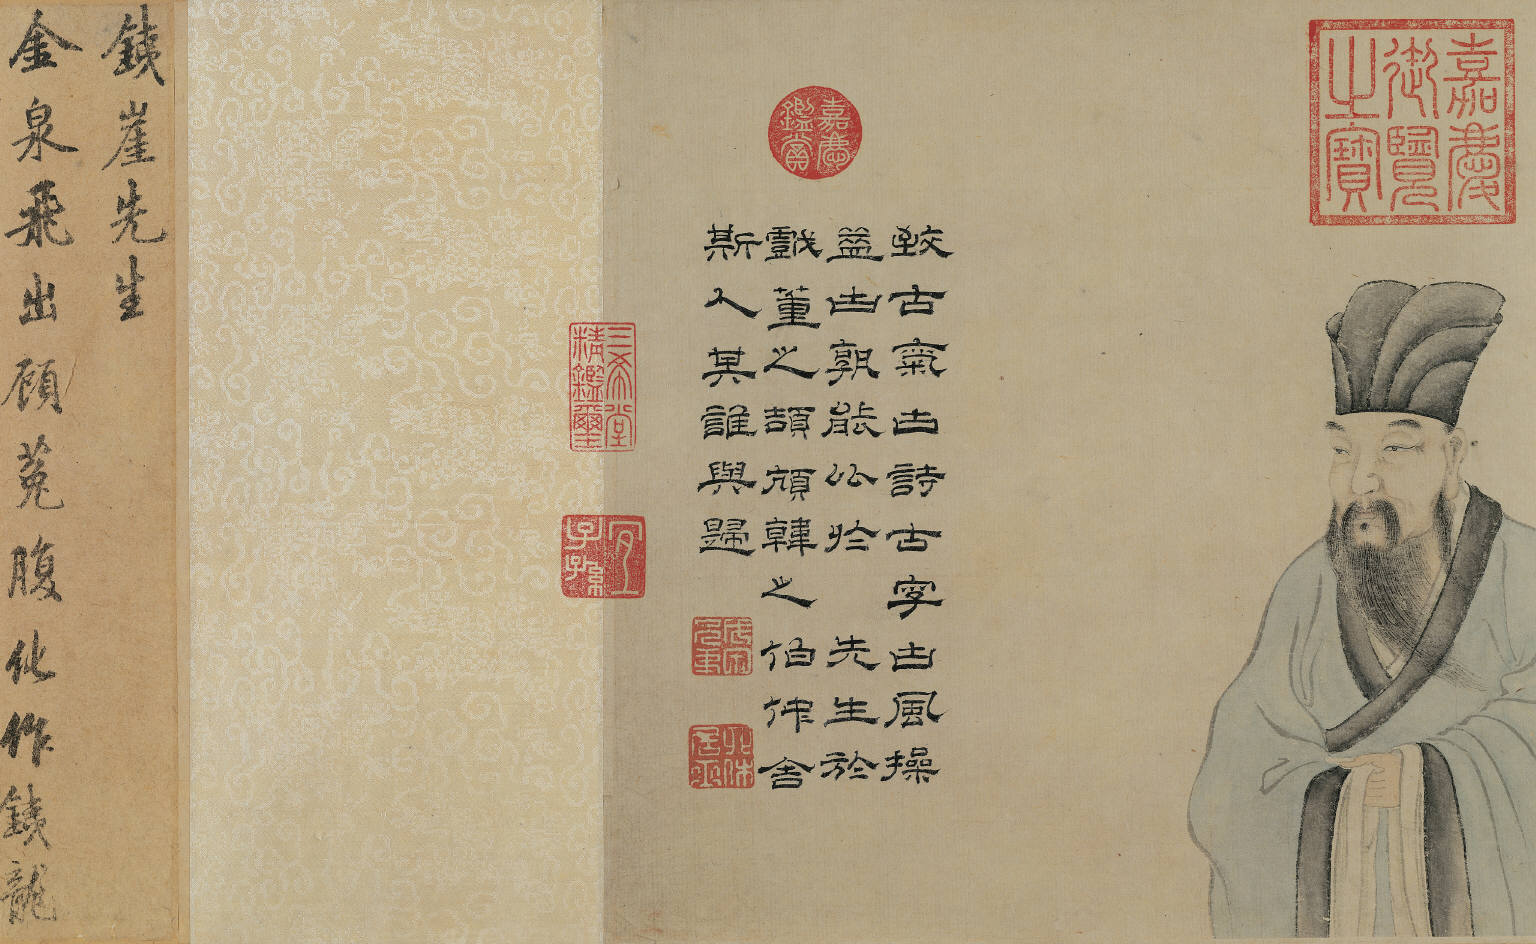 嘉慶
御覽
之寶
古氣古詩古字古風操
益古孰能公於先生於
戲董之頡頏韓之伯仲舍
斯人其誰與歸
嘉慶
鑑賞
三希堂
精鑑璽
宜
子孫
銕崖先生
金泉飛出顧菟腹化作銕龍